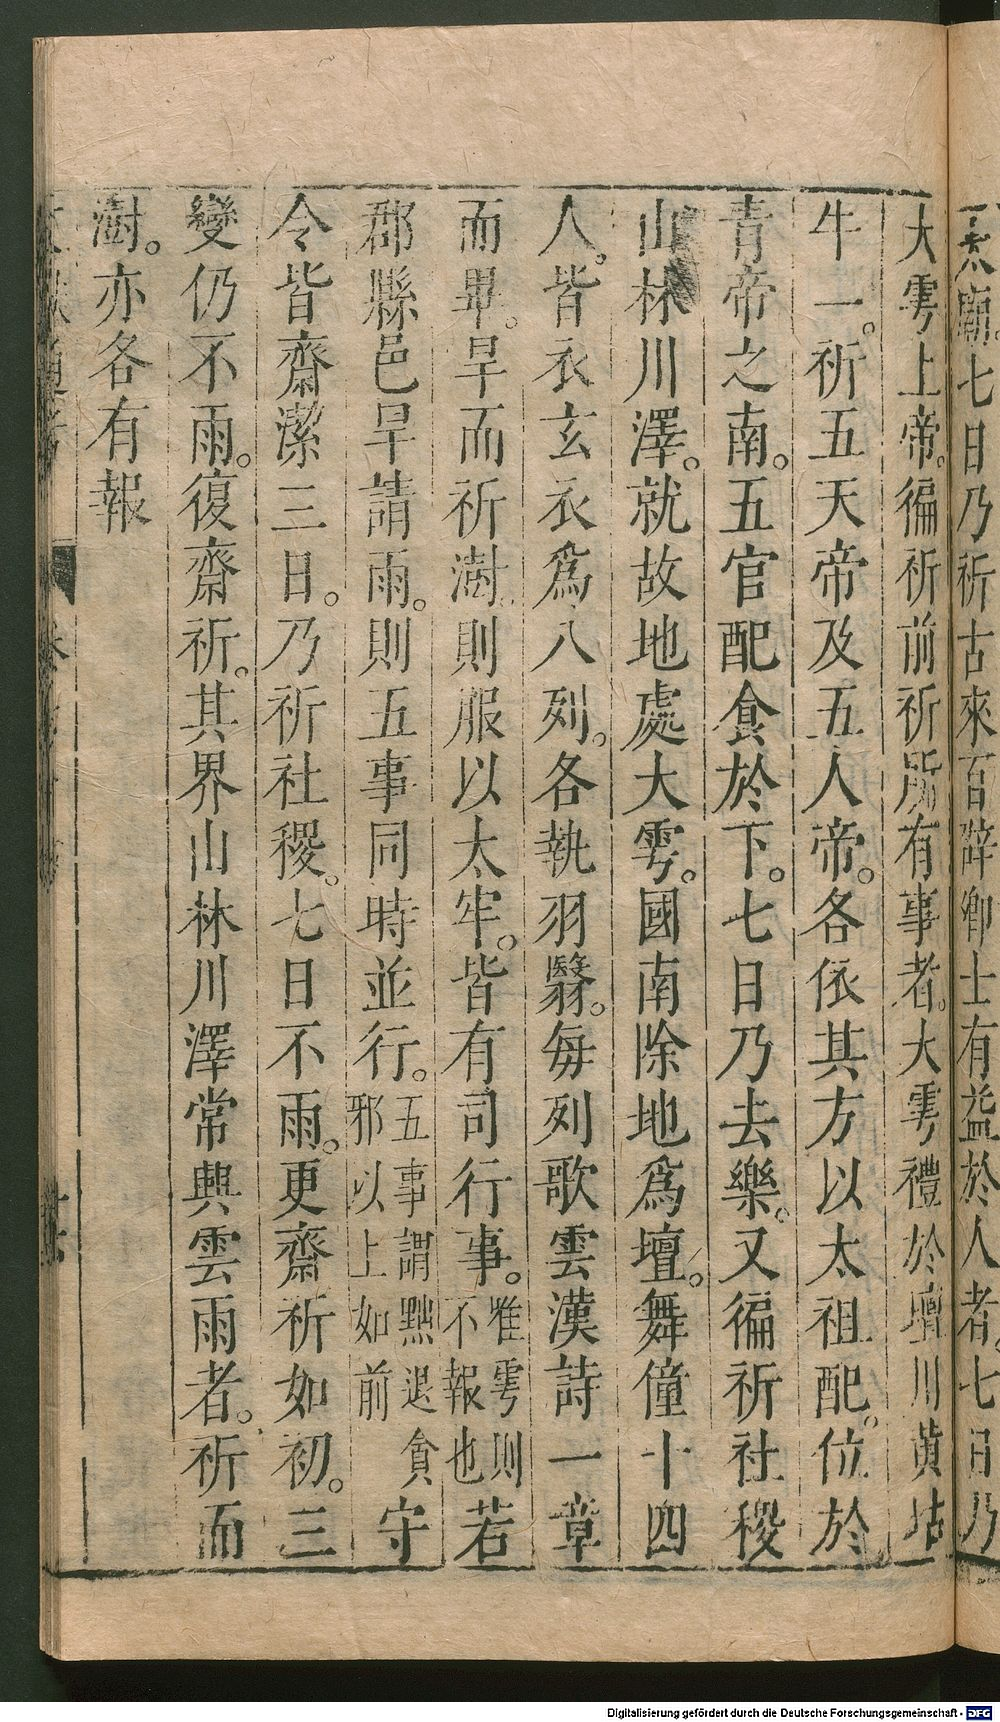 廟七日乃祈古來百辟卿士有益於人者。七日乃
大雩上帝。徧祈前祈所有事者。大雩禮於壇用黃牯
牛一。祈五天帝及五人帝。各依其方以太祖配。位於
青帝之南。五官配食於下。七日乃去樂。又徧祈社稷
山林川澤。就故地處大雩。國南除地爲壇。舞僮十四
人。皆衣玄衣爲八列。各執羽翳。每列歌雲漢詩一章
而畢。旱而祈澍。則服以太牢。皆有司行事。雅雩則不報也若
郡縣邑旱請雨。則五事同時並行。五事謂黜退貪邪以上如前守
令皆齋潔三日。乃祈社稷。七日不雨。更齋祈如初。三
變仍不雨。復齋祈。其界山林川澤常興雲雨者。祈而
澍。亦各有報
Digitalisierung gefördert durch die Deutsche Forschungsgemeinschaft - DFG